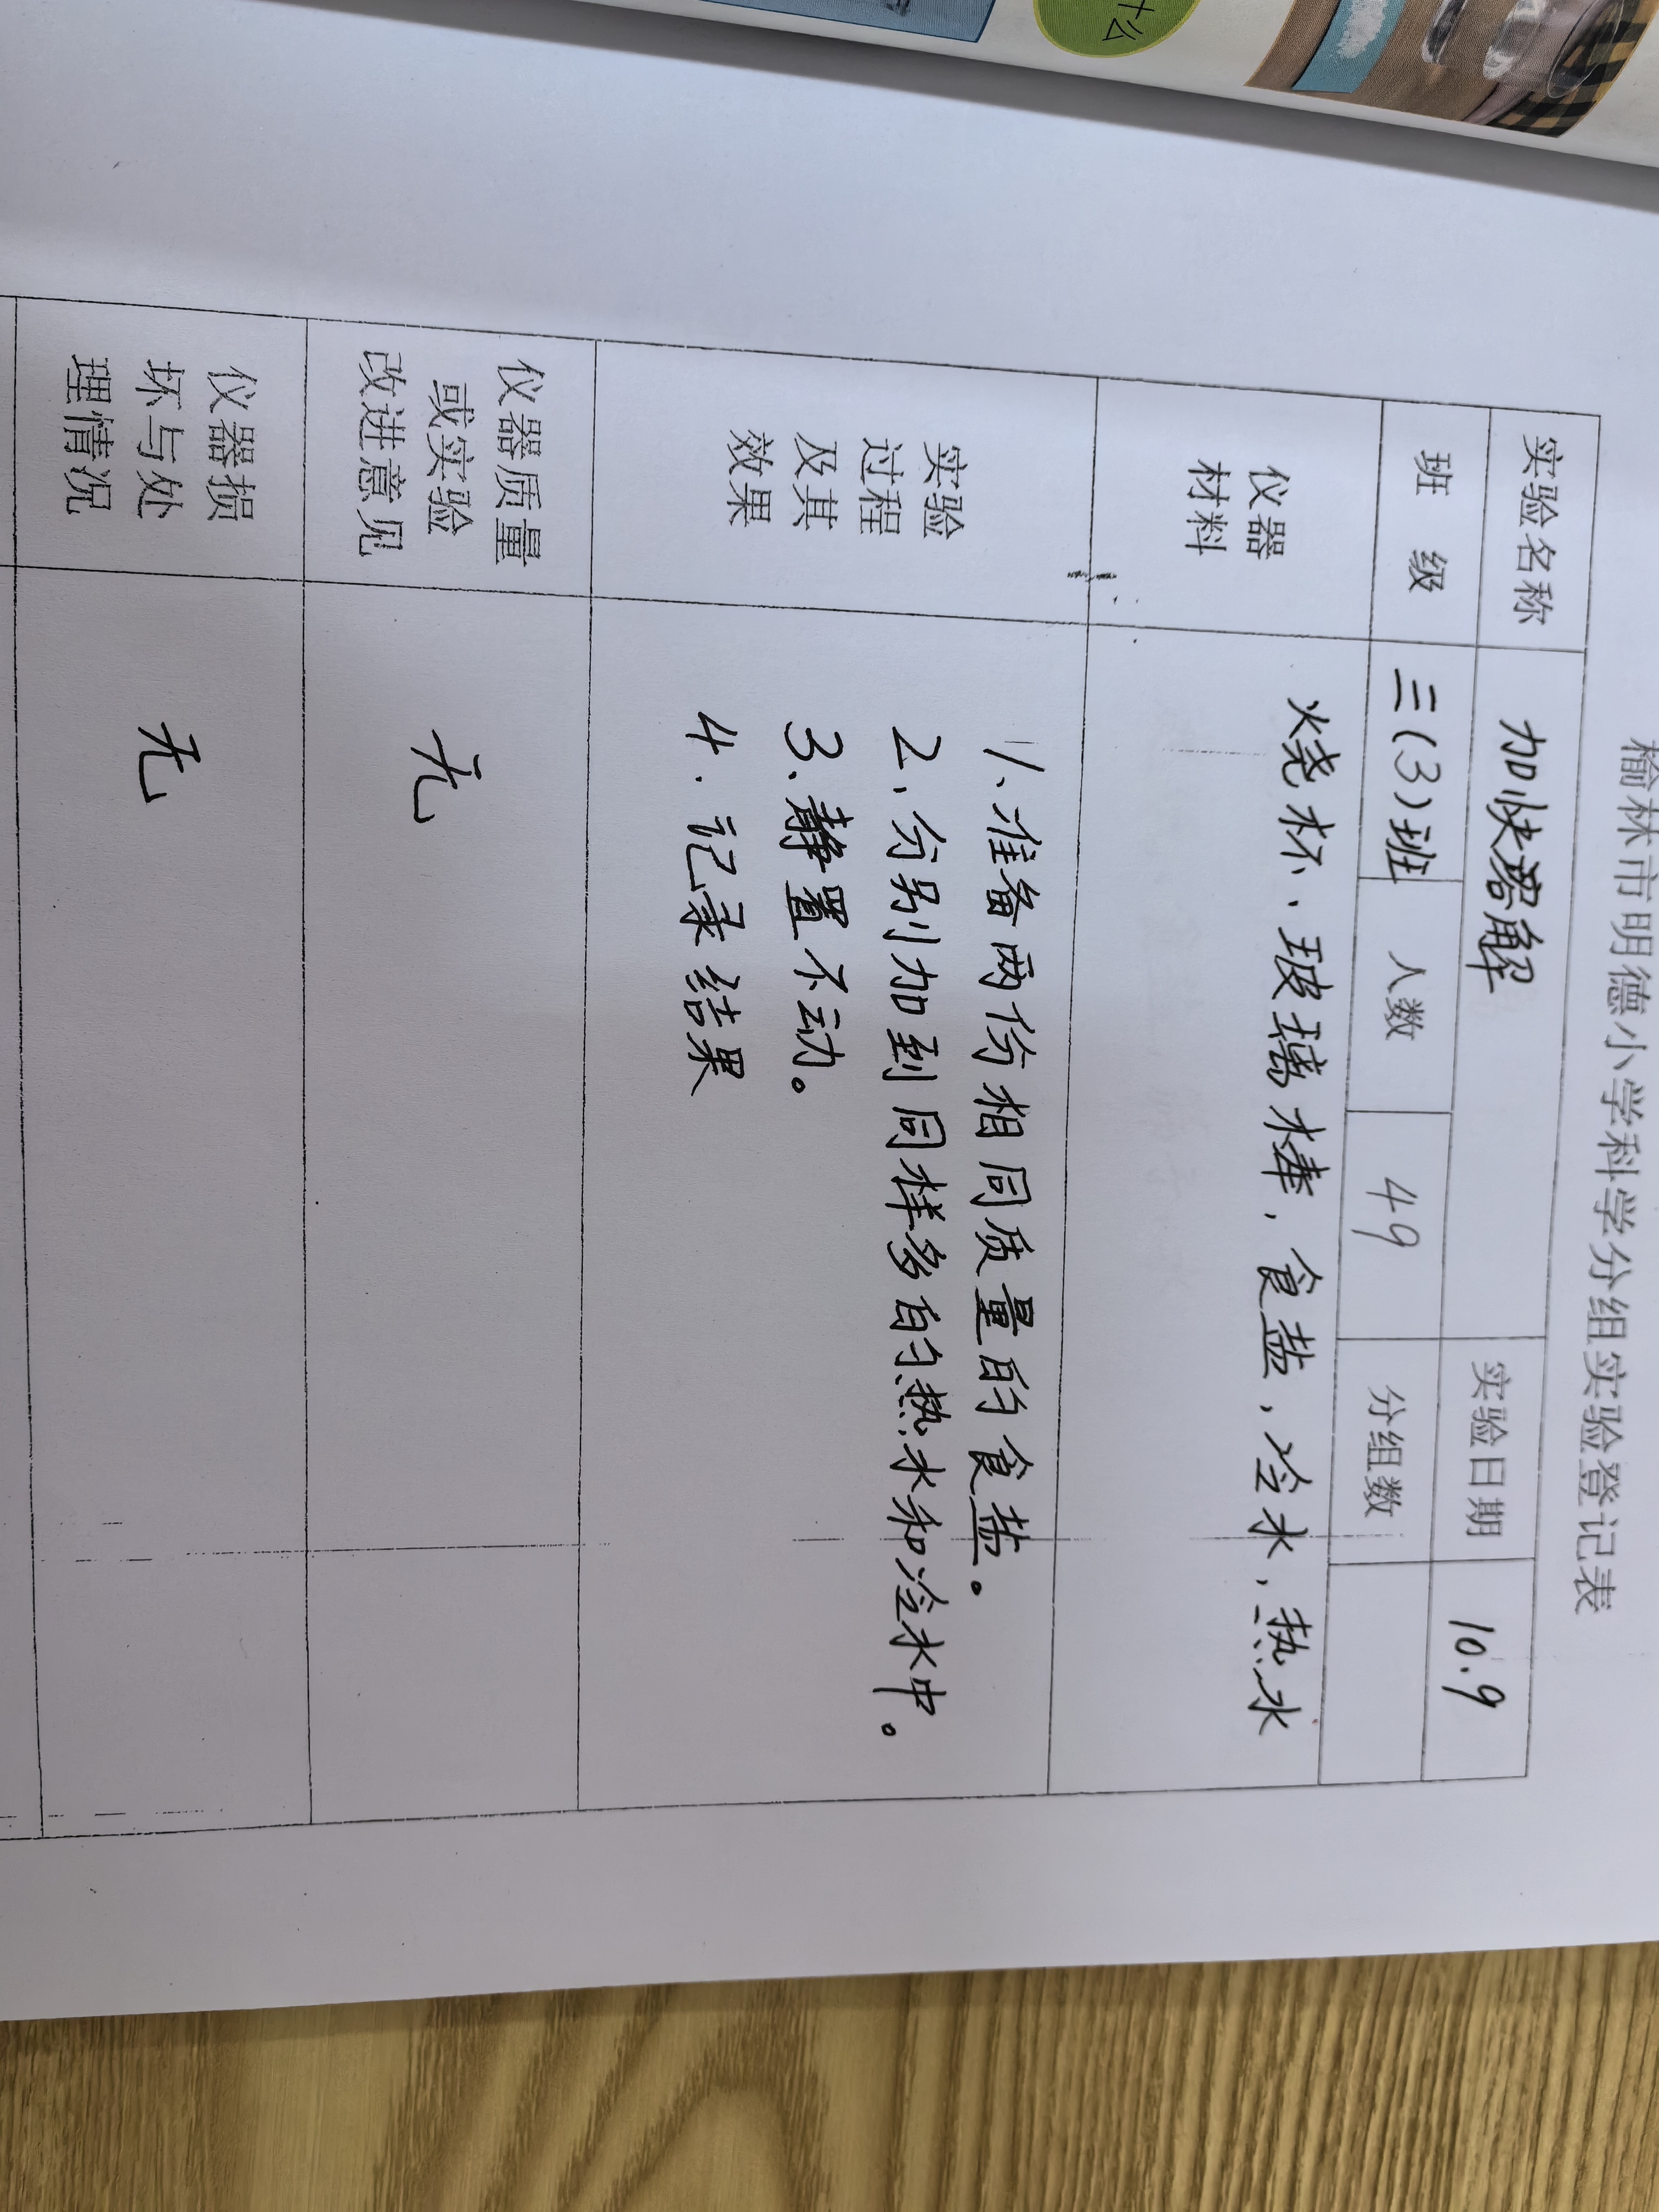 榆林市明德小学科学分组实验登记表
实验名称 加快溶解 实验日期 10.9
班 级 三(3)班 人数 49 分组数
仪器
材料
烧杯、玻璃棒，食盐，冷水，热水
实验
过程
及其
效果
1、准备两份相同质量的食盐。
2、分别加到同样多的热水和冷水中。
3、静置不动。
4.记录结果
仪器质量
或实验
改进意见
无
仪器损
坏与处
理情况
无
什么